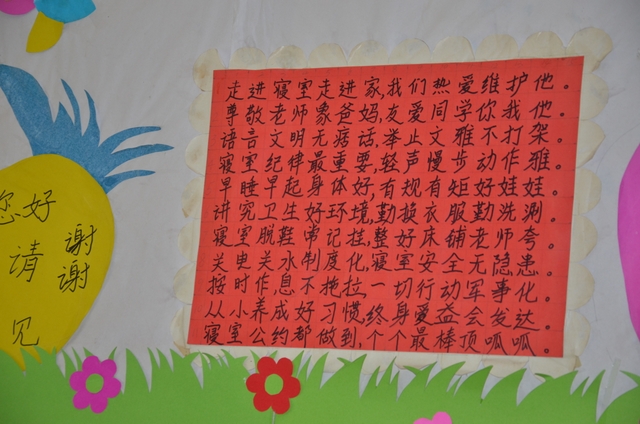 走进寝室走进家,我们热爱维护他。
尊敬老师象爸妈,友爱同学你我他。
语言文明无痞话,举止文雅不打架。
寝室纪律最重要,轻声慢步动作雅。
早睡早起身体好,有规有矩好娃娃。
讲究卫生好环境,勤换衣服勤洗涮。
寝室脱鞋常记挂,整好床铺老师夸。
关电关水制度化,寝室安全无隐患。
按时作息不拖拉,一切行动军事化。
从小养成好习惯,终身受益会发达。
寝室公约都做到,个个最棒顶呱呱。
您好
请
谢谢
见